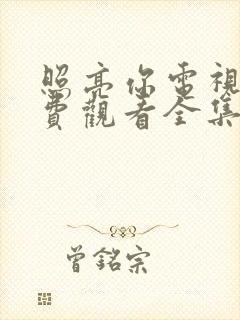 照亮你電視
費觀看全集
曾銘宗